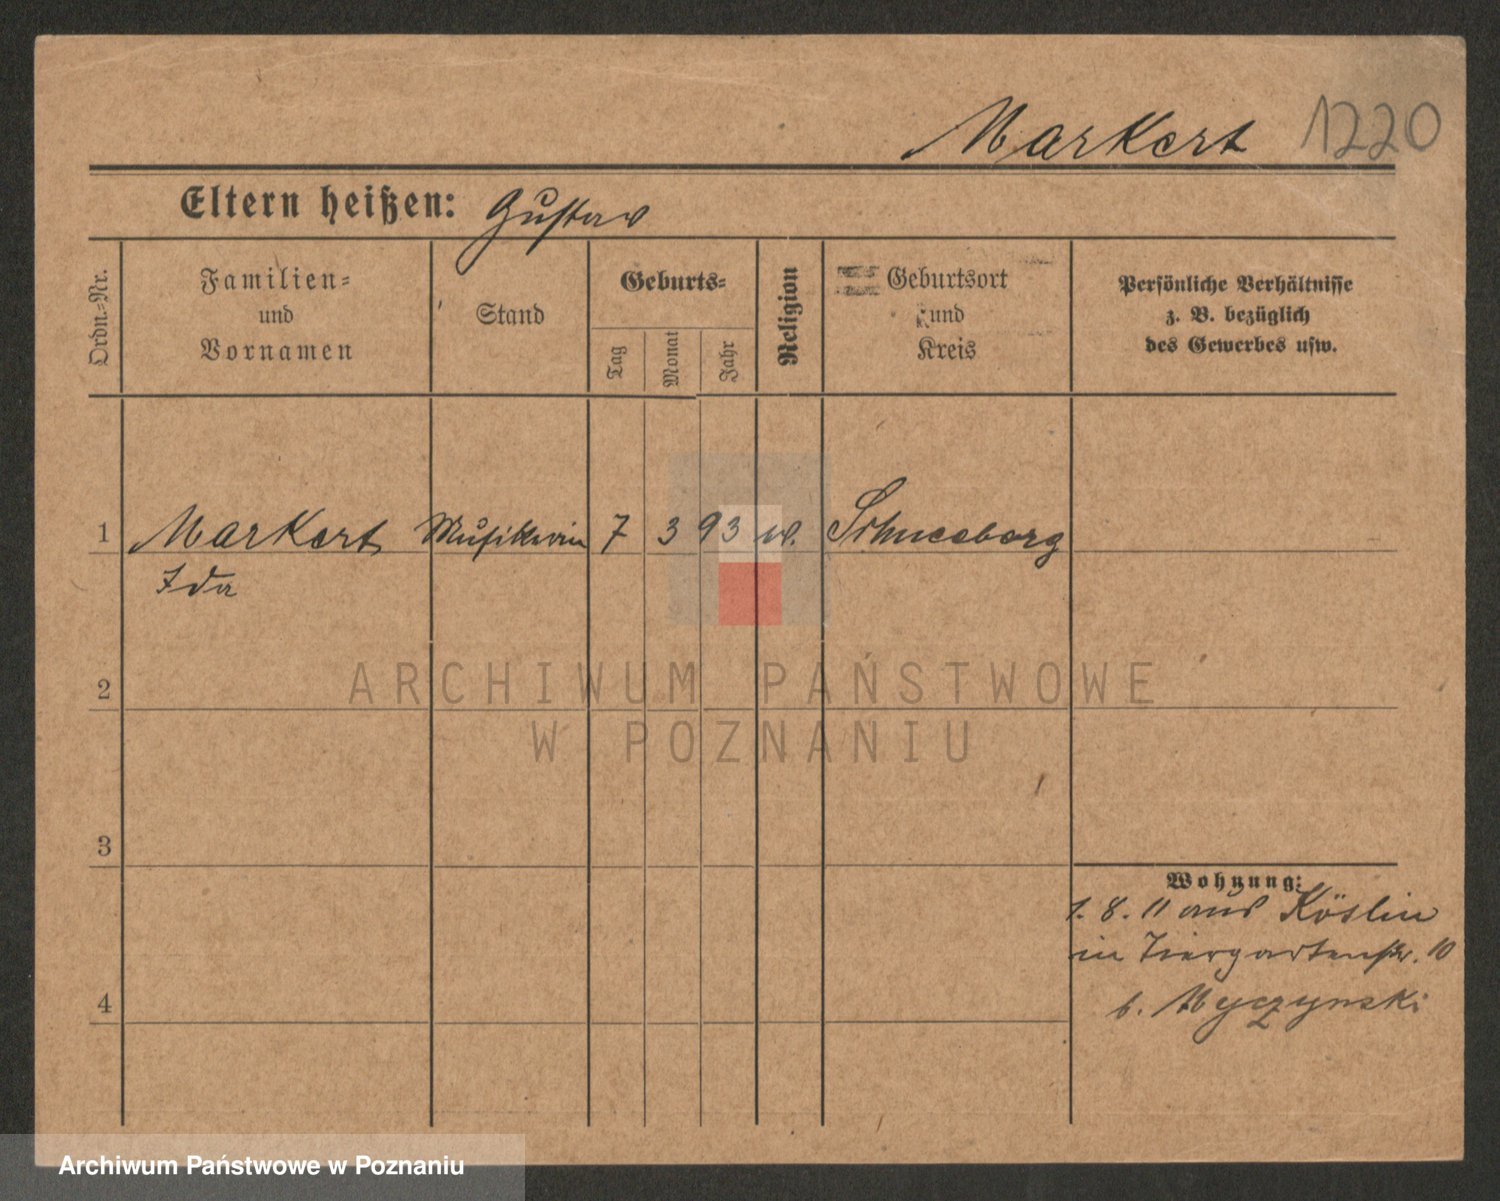 Markert 1220
Eltern heißen: Gustav
Ordn.-Nr.
Familien-
und
Vornamen
Stand
Geburts-
Tag
Monat
Jahr
Religion
Geburtsort
und
Kreis
Persönliche Verhältnisse
z. B. bezüglich
des Gewerbes usw.
1 Markert Musikerin 7 3 93 ev. Schneeberg
Ida
2
3
4
Wohnung:
1. 8. 11 aus Köslin
in Tiergartenstr. 10
b. Myczynski
ARCHIWUM PAŃSTWOWE
W POZNANIU
Archiwum Państwowe w Poznaniu